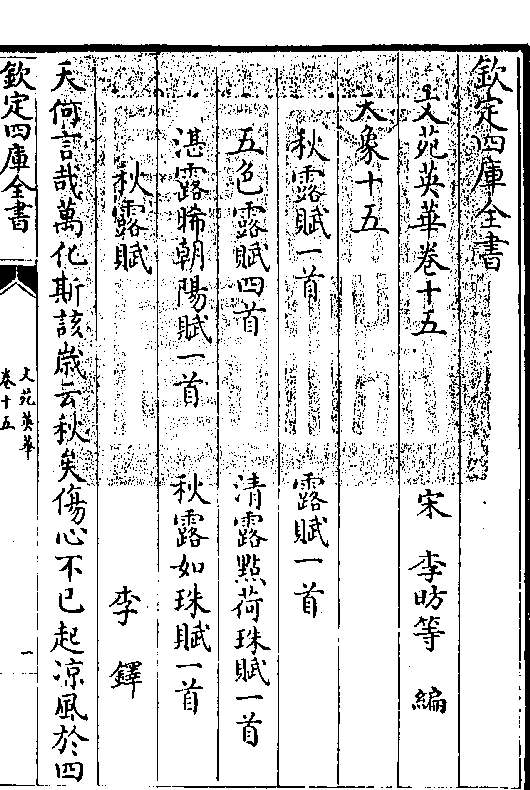 欽定四庫全書
文苑英華卷十五
宋 李昉等 編
天象十五
秋露賦一首
露賦一首
五色露賦四首
清露點荷珠賦一首
湛露晞朝陽賦一首
秋露如珠賦一首
秋露賦
李鐸
天何言哉萬化斯該歳云秋矣傷心不已起凉風於四
欽定四庫全書
文苑英華
卷十五
一